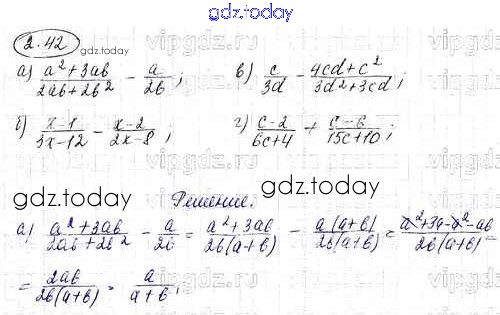 gdz.today
2.42
gdz.today
vipgdz.ru
а) (a²+3ab)/(2ab+2b²) − a/2b ; в) c/3d − (4cd+c²)/(3d²+3cd) ;
б) (x−1)/(3x−12) − (x−2)/(2x−8) ; г) (c−2)/(6c+4) + (c−6)/(15c+10) ;
gdz.today
gdz.today
Решение.
а) (a²+3ab)/(2ab+2b²) − a/2b = (a²+3ab)/(2b(a+b)) − a(a+b)/(2b(a+b)) = (a²+3a−a²−ab)/(2b(a+b)) =
= 2ab/(2b(a+b)) = a/(a+b) ;
gdz.today